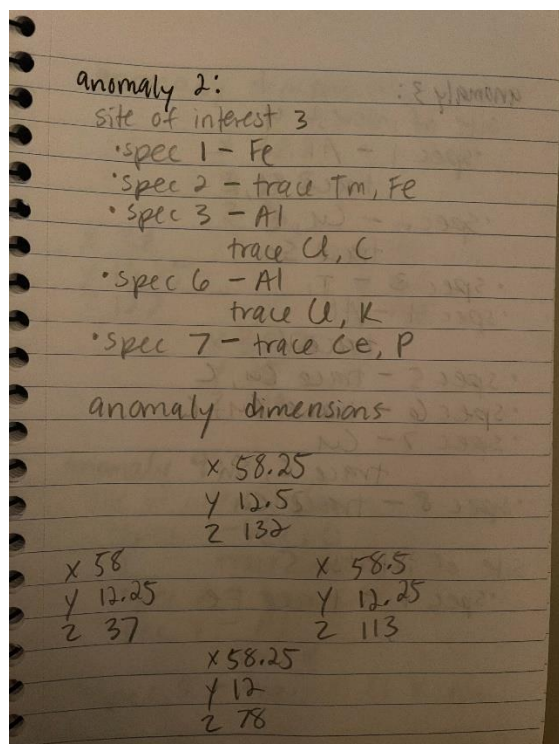 anomaly 2:
site of interest 3
•spec 1 - Fe
•spec 2 - trace Tm, Fe
•spec 3 - Al
trace Cl, C
•spec 6 - Al
trace Cl, K
•spec 7 - trace Ce, P
anomaly dimensions
x 58.25
y 12.5
z 132
x 58
y 12.25
z 37
x 58.5
y 12.25
z 113
x 58.25
y 12
z 78